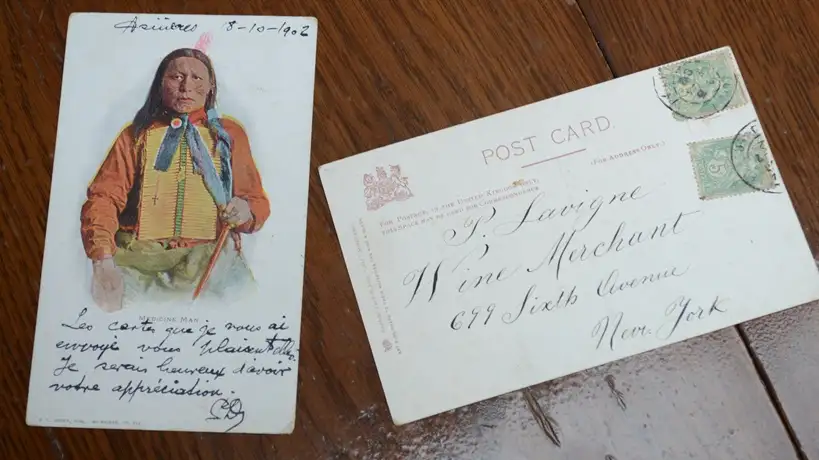 Asnières 8-10-1902
MEDICINE MAN
Les cartes que je vous ai
envoyé vous plaisent elles
Je serais heureux d'avoir
votre appréciation.
POST CARD.
(FOR ADDRESS ONLY.)
FOR POSTAGE IN THE UNITED KINGDOM ONLY,
THIS SPACE MAY BE USED FOR CORRESPONDENCE
P. Lavigne
Wine Merchant
699 Sixth Avenue
New York
5